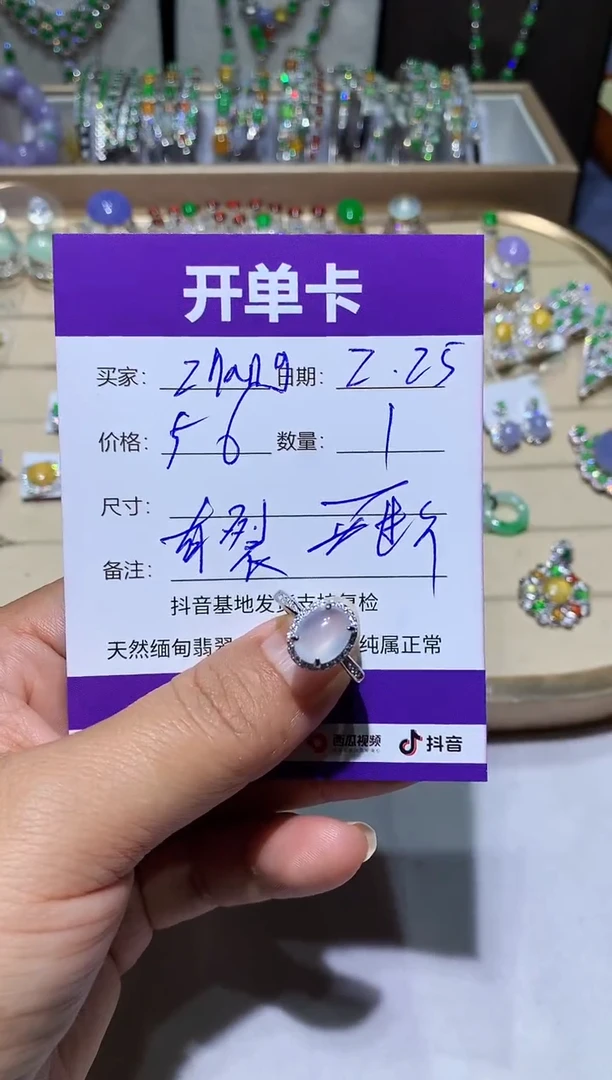 开单卡
买家: zhang 日期: 2.25
价格: 56 数量: 1
尺寸:
备注: 有裂
抖音基地发货支持复检
天然缅甸翡翠 纯属正常
西瓜视频 抖音